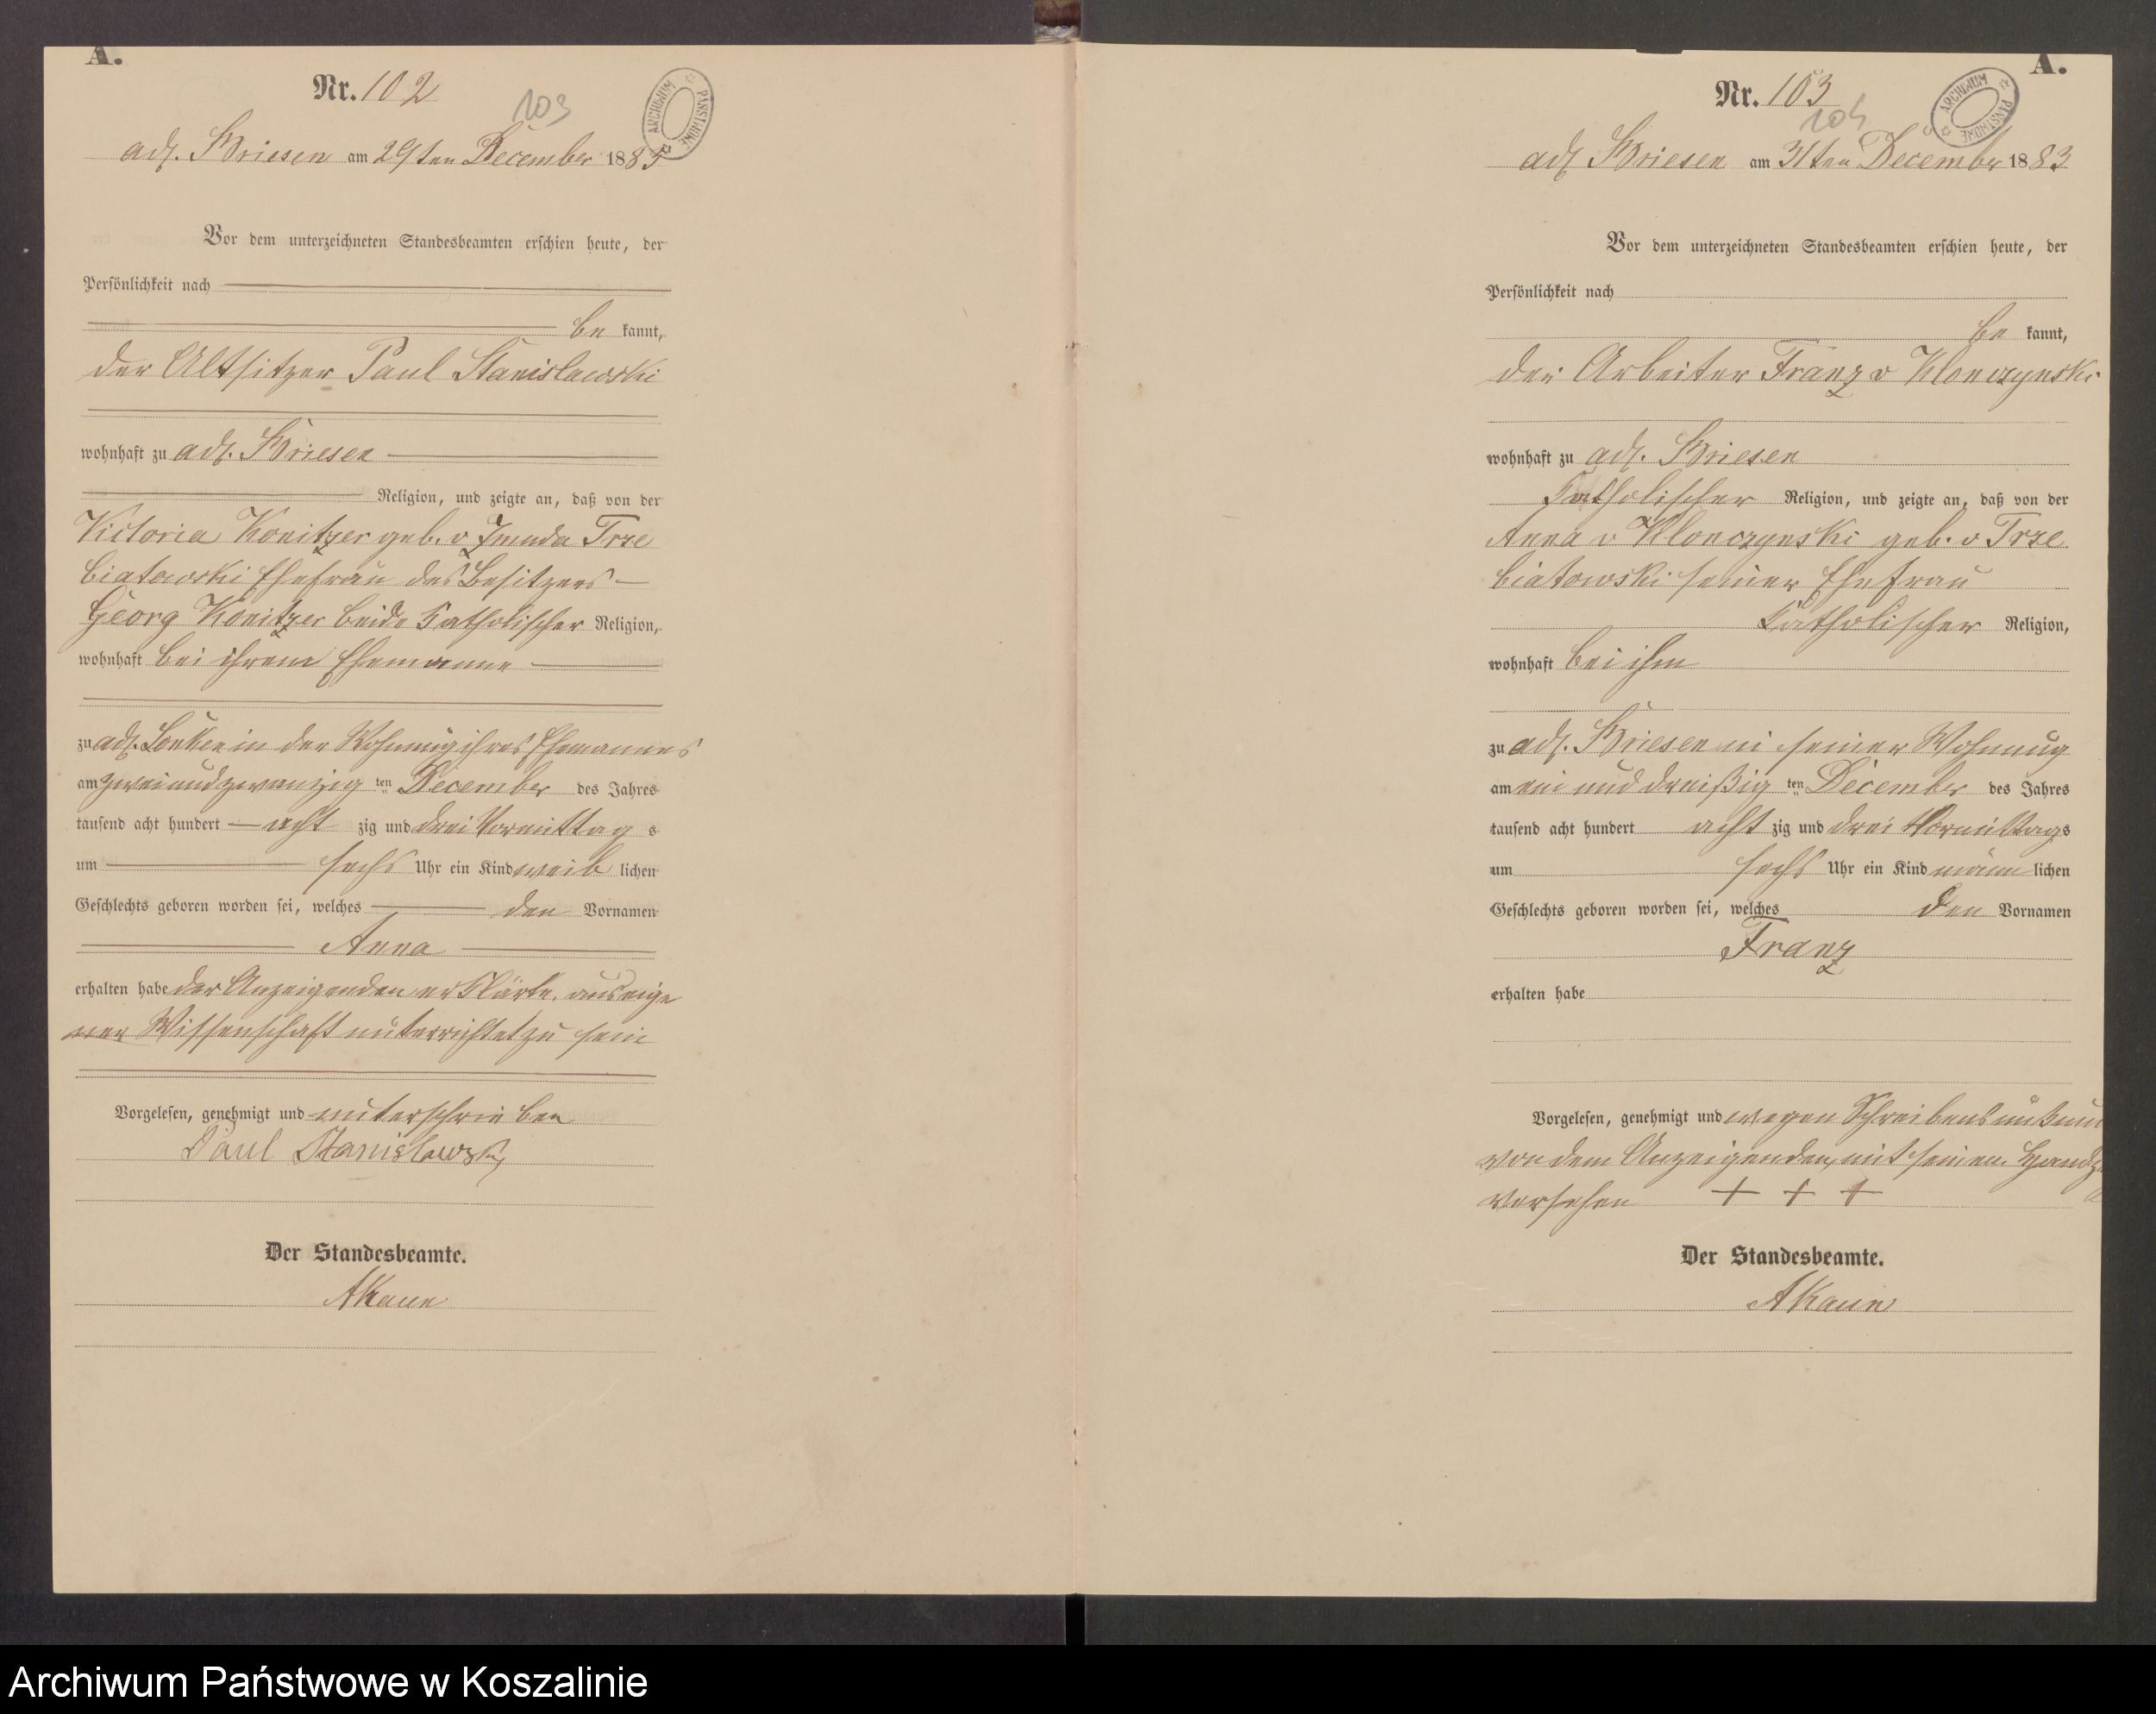 A.
Nr. 102
103
ARCHIWUM PAŃSTWOWE
adl. Briesen am 29ten December 1883
Vor dem unterzeichneten Standesbeamten erschien heute, der
Persönlichkeit nach
be kannt,
der Altsitzer Paul Stanislawski
wohnhaft zu adl. Briesen
Religion, und zeigte an, daß von der
Victoria Konitzer geb. v Zmuda Trze
biatowski Ehefrau des Besitzers
Georg Konitzer beide Katholischer Religion,
wohnhaft bei ihrem Ehemanne
zu adl. Lonken in der Wohnung ihres Ehemannes
am zweiundzwanzig ten December des Jahres
tausend acht hundert acht zig und drei Vormittag s
um sechs Uhr ein Kind weib lichen
Geschlechts geboren worden sei, welches den Vornamen
Anna
erhalten habe der Anzeigenden erklärte, aus eige
ner Wissenschaft unterrichtet zu sein
Vorgelesen, genehmigt und unterschrieben
Paul Stanislawski
Der Standesbeamte.
A.
Nr. 103
104
ARCHIWUM PAŃSTWOWE
adl Briesen am 31ten December 1883
Vor dem unterzeichneten Standesbeamten erschien heute, der
Persönlichkeit nach
be kannt,
der Arbeiter Franz v Klonczynski
wohnhaft zu adl. Briesen
Katholischer Religion, und zeigte an, daß von der
Anna v Klonczynski geb. v Trze
biatowski seiner Ehefrau
Katholischer Religion,
wohnhaft bei ihm
zu adl. Briesen in seiner Wohnung
am ein und dreißig ten December des Jahres
tausend acht hundert acht zig und drei Vormittags
um sechs Uhr ein Kind männ lichen
Geschlechts geboren worden sei, welches den Vornamen
Franz
erhalten habe
Vorgelesen, genehmigt und wegen Schreibens
von dem Anzeigenden mit seinen Handz
versehen + + +
Der Standesbeamte.
Archiwum Państwowe w Koszalinie